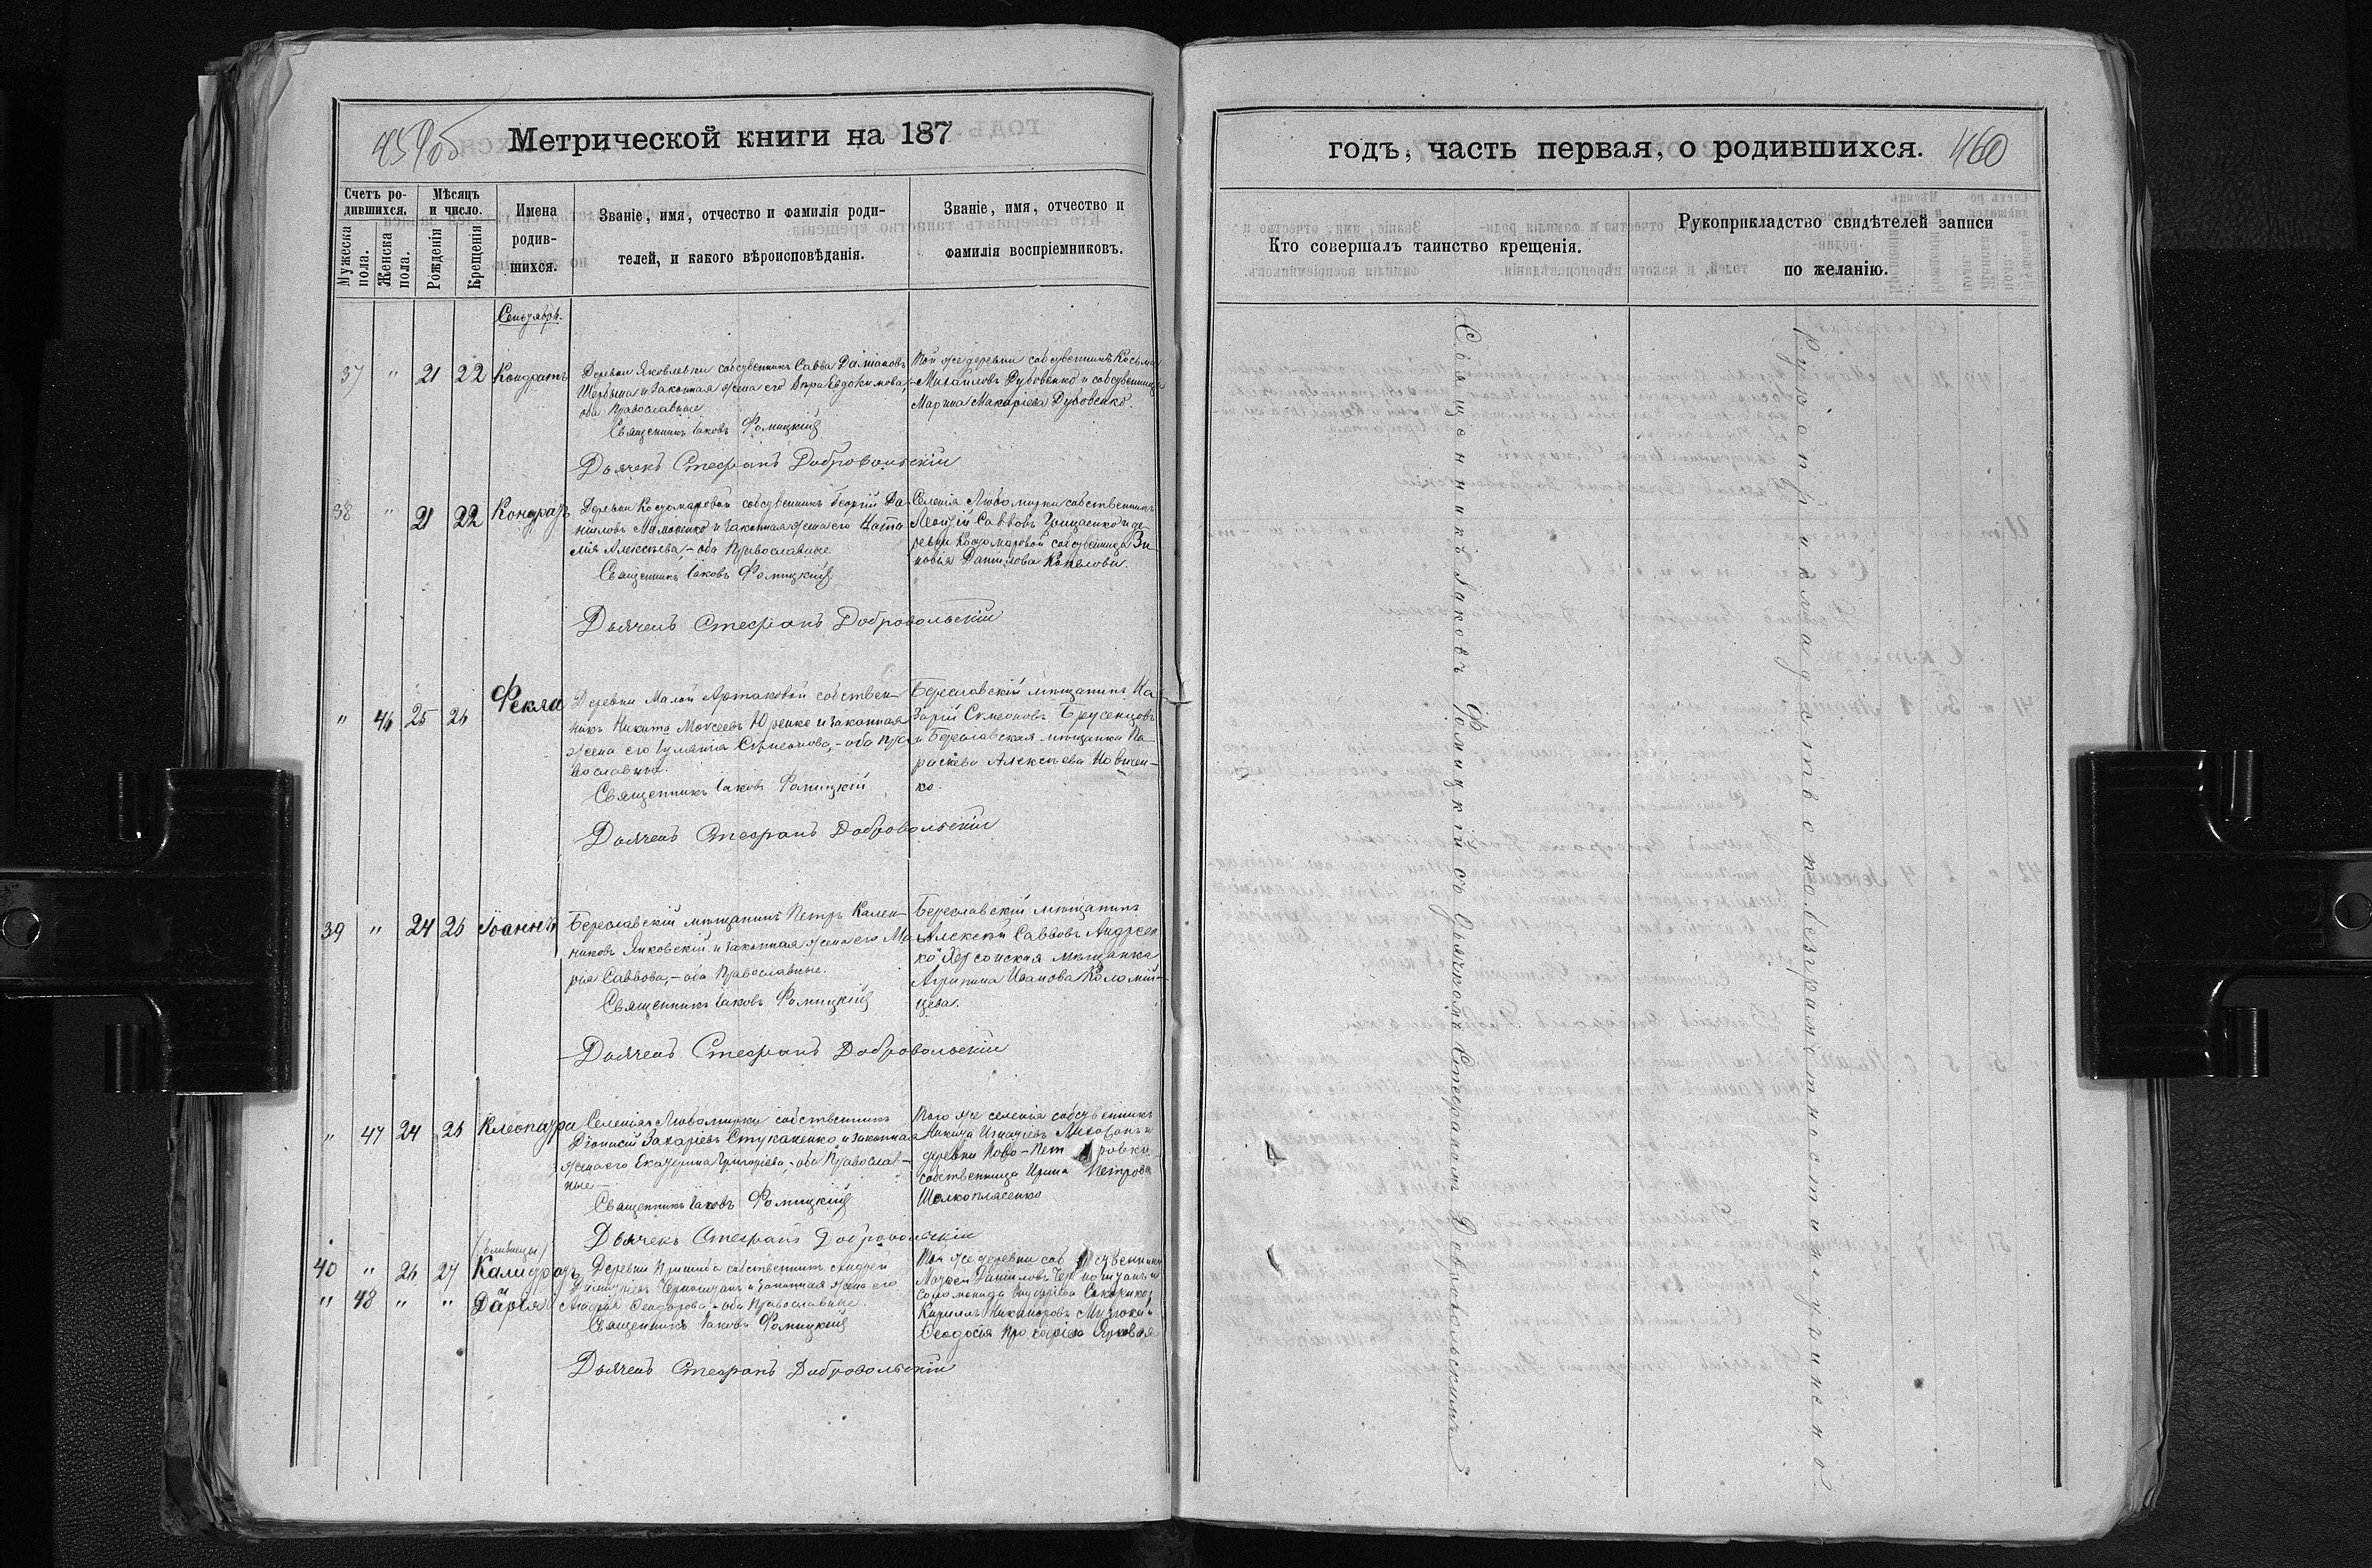 459об
Метрической книги на 187
Счетъ родившихся.
Мужеска пола.
Женска пола.
Мѣсяцъ и число.
Рожденія
Крещенія
Имена родившихся.
Званіе, имя, отчество и фамилія роди-
телей, и какого вѣроисповѣданія.
Званіе, имя, отчество и
фамилія воспріемниковъ.
Сентябрь.
37 " 21 22 Кондратъ
Деревни Яковлевки собственникъ Савва Даміановъ
Щербина и законная жена его Евдокимова,
оба Православные
Священникъ Іаковъ Фомицкій
Дьячекъ Стефанъ Добровольскій
Той же деревни собственникъ Косьма
Михаиловъ Дубовенко и собственница
Марина Макаріева Дубовенко.
38 " 21 22 Кондратъ
Деревни Костомаревой собственникъ Георгій Да-
ніиловъ и законная жена его Ната
лія Алексѣева, - оба Православные
Священникъ Іаковъ Фомицкій
Дьячекъ Стефанъ Добровольскій
Селенія Любомирки собственникъ
Саввовъ Грищенко и де-
ревни Костомаревой собственница Зи-
новія Данилова
" 46 25 26 Фекла
Деревни Малой собствен-
никъ Никита Моисеевъ Юренко и законная
жена его Іуліанія Симеонова, - оба Пра
вославные.
Священникъ Іаковъ Фомицкій
Дьячекъ Стефанъ Добровольскій
Береславскій мѣщанинъ На
зарій Симеоновъ Брусенцовъ
и Береславская мѣщанка Па
раскева Алексѣева Новичен-
ко.
39 " 24 26 Іоаннъ
Береславскій мѣщанинъ Петръ Кален-
никовъ Янковскій и законная жена его Ма-
рія Саввова, - оба Православные.
Священникъ Іаковъ Фомицкій
Дьячекъ Стефанъ Добровольскій
Береславскій мѣщанинъ
Алексѣй Саввовъ Андреен
ко и Херсонская мѣщанка
Агрипина Иванова Коломій-
цева.
" 47 24 26 Клеопатра
Селенія Любомирки собственникъ
Діонисій Захаріевъ Стуканенко и законная
жена его Екатерина Григоріева, - оба Православ-
ные
Священникъ Іаковъ Фомицкій
Дьячекъ Стефанъ Добровольскій
Того же селенія собственникъ
Никита Игнатіевъ и
деревни Ново-Петровки
собственница Ирина Петрова
Шолкоплясенко
(близнецы)
40 " 26 27 Калистратъ
" 48 " " Дарія
Деревни собственникъ Андрей
Димитріевъ и законная жена его
Ѳеодорова - оба Православные.
Священникъ Іаковъ Фомицкій
Дьячекъ Стефанъ Добровольскій
Той же деревни собственники
Даниловъ и
Кириллъ Никаноровъ и
Ѳеодосія Прокофіева
годъ, часть первая, о родившихся.
460
Кто совершалъ таинство крещенія.
Рукоприкладство свидѣтелей записи
по желанію.
Священникъ Іаковъ Фомицкій съ дьячкомъ Стефаномъ Добровольскимъ
Рукоприкладство по безграмотности не учинено